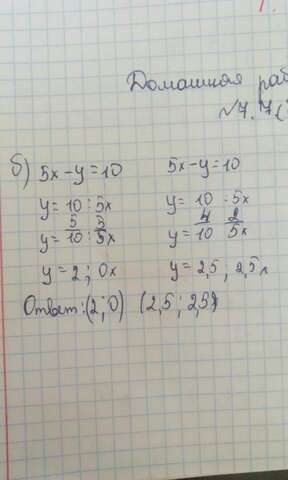 Домашная раб
№7.7(
б) 5x-y=10 5x-y=10
y=10:5x y=10:5x
5 5 4 2
y=10:5x y=10 5x
y=2; 0x y=2,5; 2,5x
Ответ:(2;0) (2,5; 2,5)